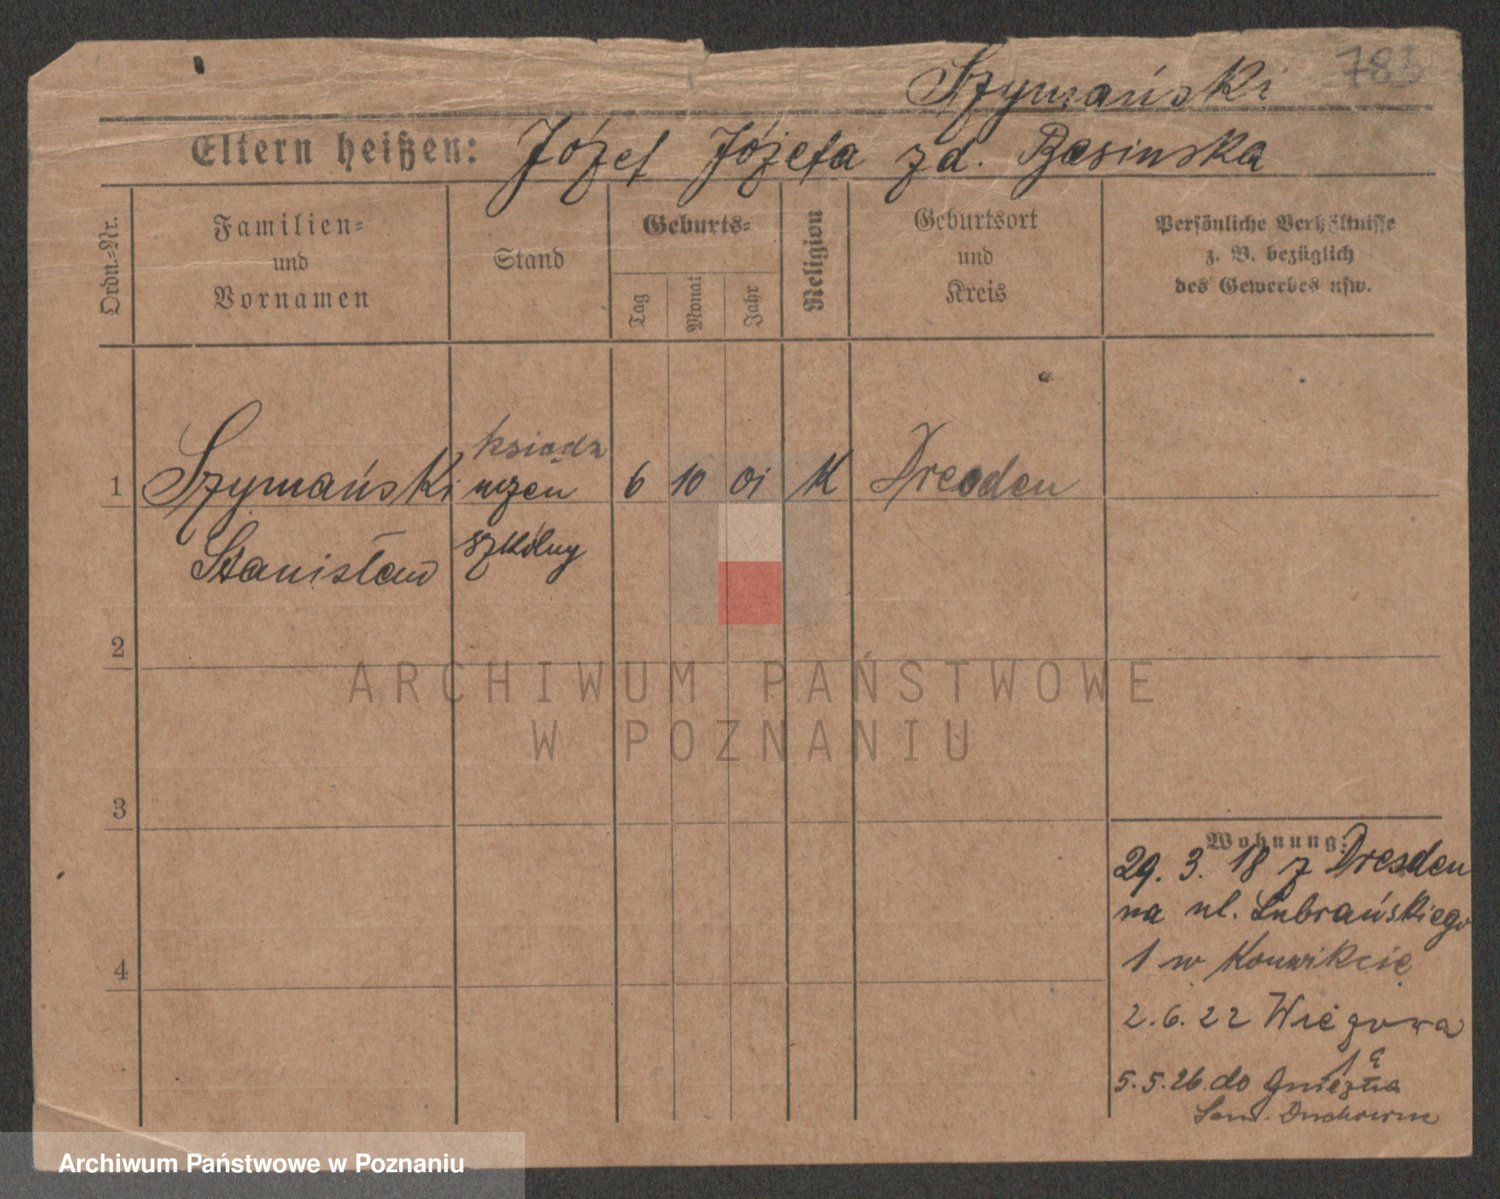 783
Szymański
Eltern heißen: Józef Józefa zd. Basinska
Ordn.-Nr.
Familien-
und
Vornamen
Stand
Geburts-
Tag
Monat
Jahr
Religion
Geburtsort
und
Kreis
Persönliche Verhältnisse
z. B. bezüglich
des Gewerbes usw.
ksiądz
1 Szymański uczeń 6 10 01 K Dresden
Stanisław szkólny
2
ARCHIWUM PAŃSTWOWE
W POZNANIU
3
Wohnung:
29. 3. 18 z Dresden
na ul. Lubrańskiego
1 w Konwikcie
4
2.6.22 Wieżowa
5.5.26. do Gniezna
Sem. Duchowne
Archiwum Państwowe w Poznaniu